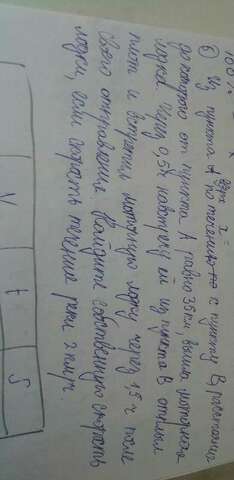 100%
х
⑥ Из пункта А по течению к пункту В, расстояние
до которого от пункта А равно 35 км, вышла моторная
лодка. Через 0,5 ч навстречу ей из пункта В отплыл
плот и встретил моторную лодку через 1,5 ч после
своего отправления. Найдите собственную скорость
лодки, если скорость течения реки 2 км/ч
V t S